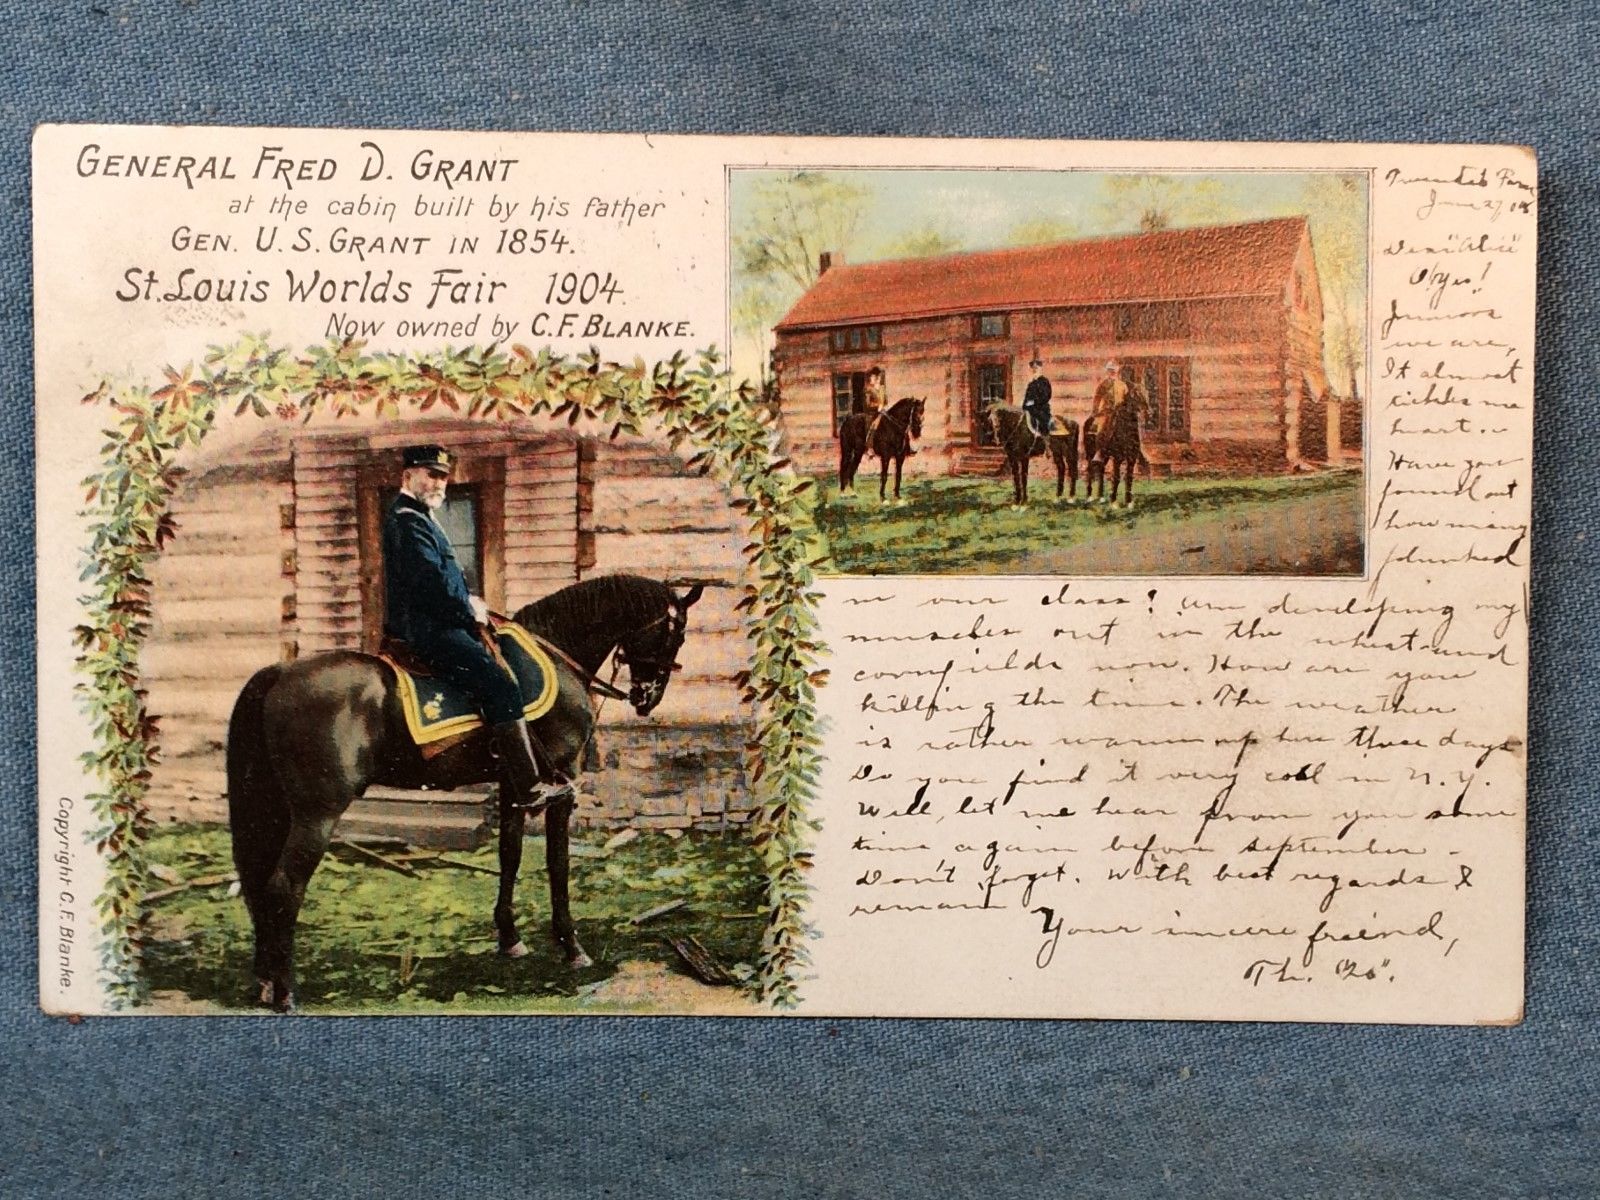 GENERAL FRED D. GRANT
at the cabin built by his father
GEN. U.S. GRANT IN 1854.
St. Louis Worlds Fair 1904.
Now owned by C.F. BLANKE.
Copyright C.F. Blanke.
June 27
Dear "Alie"
O yes!
Juniors
we are,
It almost
tickles me
heart.
Have you
found out
how many
flunked
in our class? Am developing my
muscles out in the wheat and
cornfields now. How are you
killing the time. The weather
is rather warm up here these days
Do you find it very cold in N.Y.
Well, let me hear from you some
time again before september -
Don't forget. With best regards I
remain
Your sincere friend,
Th.